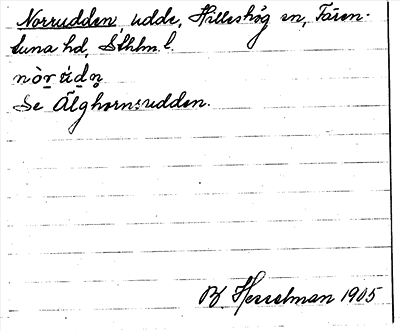 Norrudden, udde, Hilleshög sn, Fären-
tuna hd, Sthlm l.
Se Älghornsudden.
B. Hesselman 1905